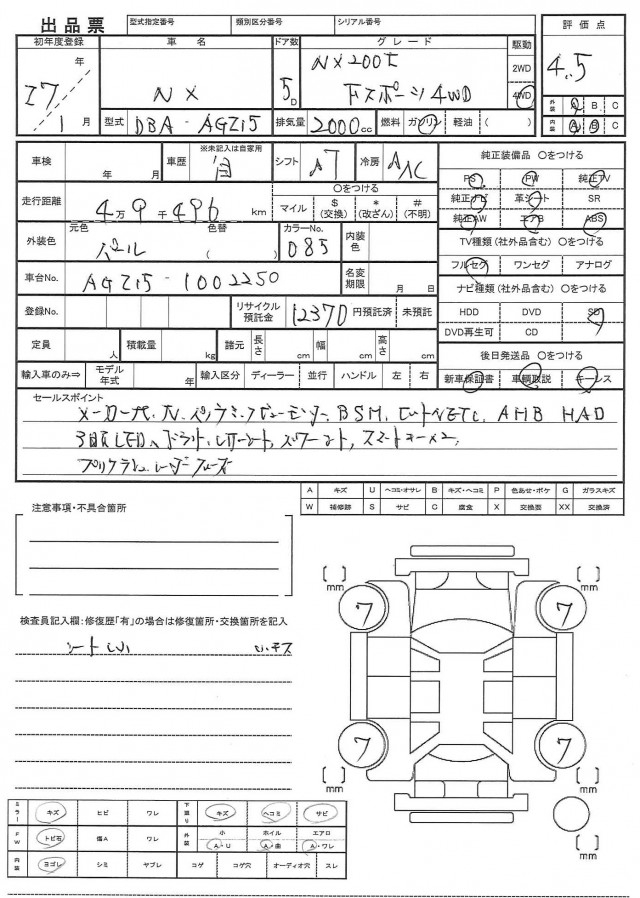 出品票 型式指定番号 類別区分番号 シリアル番号
初年度登録 車名 ドア数 グレード 駆動 評価点
27年 1月 NX 5D NX200t Fスポーツ4WD 2WD 4WD 4.5
外装 A B C
内装 A B C
型式 DBA-AGZ15 排気量 2000cc 燃料 ガソリン 軽油 ( )
車検 年 月 車歴 ※未記入は自家用 自 シフト AT 冷房 AAC
純正装備品 ○をつける
PS PW 純正TV
純正ナビ 革シート SR
純正AW エアB ABS
走行距離 4万9千496km ○をつける
マイル $(交換) *(改ざん) #(不明)
TV種類(社外品含む) ○をつける
フルセグ ワンセグ アナログ
外装色 元色 パール 色替 ( ) カラーNo. 085 内装色
車台No. AGZ15-1002250 名変期限 月 日
ナビ種類(社外品含む) ○をつける
HDD DVD SD
DVD再生可 CD
登録No. リサイクル預託金 12370 円預託済 未預託
定員 人 積載量 kg 諸元 長さ cm 幅 cm 高さ cm
後日発送品 ○をつける
新車保証書 車輌取説 キーレス
輸入車のみ⇒ モデル年式 年 輸入区分 ディーラー 並行 ハンドル 左 右
セールスポイント
メーカーナビ、パノラミックビューモニター、BSM、ETC、AHB HUD
3眼LEDヘッドライト、レザーシート、パワーシート、スマートキー×2、
プリクラッシュ、レーダークルーズ
A キズ U ヘコミ・オサレ B キズ・ヘコミ P 色あせ・ボケ G ガラスキズ
W 補修跡 S サビ C 腐食 X 交換要 XX 交換済
注意事項・不具合箇所
検査員記入欄:修復歴「有」の場合は修復箇所・交換箇所を記入
シート 小キズ
mm mm
7 7
7 7
mm mm
mm
ミラー キズ ヒビ ワレ 下廻り キズ ヘコミ サビ
FW トビ石 傷A ワレ 外装 小 A・U ホイル A・曲 エアロ A・ワレ
内装 ヨゴレ シミ ヤブレ コゲ コゲ穴 オーディオ穴 スレ